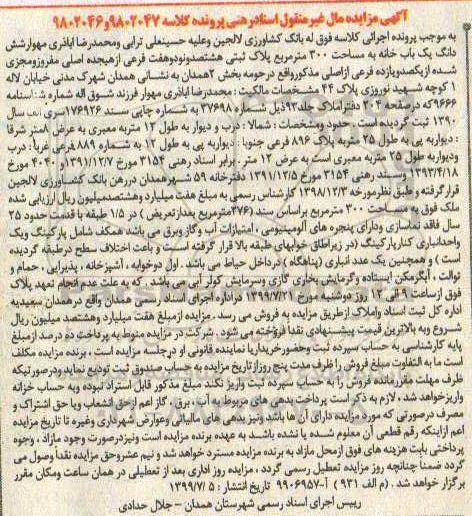 آگهی مزایده مال غیرمنقول اسناد رهنی پرونده کلاسه ۹۸۰۲۰۴۷و۹۸۰۲۰۴۶
به موجب پرونده اجرائی کلاسه فوق له بانک کشاورزی لالجین وعلیه حسینعلی ترابی ومحمدرضا اباذری مهوارشش
دانگ یک باب خانه به مساحت ۳۰۰ مترمربع پلاک ثبتی هشتصدونودوهفت فرعی ازهیجده اصلی مفروزومجزی
شده ازیکصدویازده فرعی ازاصلی مذکورواقع درحومه بخش ۲همدان به نشانی همدان شهرک مدنی خیابان لاله
۱ کوچه شهید نوروزی پلاک ۴۴ مشخصات مالکیت : محمدرضا اباذری مهوار فرزند شوق اله شماره شناسنامه
۹۶۶۶که درصفحه ۲۰۴ دفتراملاک جلد۹۳ذیل شماره ۳۷۶۹۸ به شماره چاپی سند ۱۷۶۹۲۶سری الف سال
۱۳۹۰ ثبت گردیده است . حدود ومشخصات : شمالا : درب و دیوار به طول ۱۲ متربه معبری به عرض ۱۰متر شرقا
: دیواربه پی به طول ۲۵ متربه پلاک ۸۹۶ فرعی جنوبا : دیواربه پی به طول ۱۲ به شماره ۸۸۹ فرعی غربا : درب
ودیواربه طول ۲۵ متربه معبری است به عرض ۱۲ متر . برابر اسناد رهنی ۳۱۵۴ مورخ ۱۳۹۱/۱۲/۷و ۴۰۴۰ مورخ
۱۳۹۳/۴/۱۸ وسند رهنی ۳۱۵۴ مورخ ۱۳۹۱/۱۲/۵ دفترخانه ۵۹ شهرهمدان دررهن بانک کشاورزی لالجین
قرارگرفته و طبق نظرمورخه ۱۳۹۸/۱۲/۳ کارشناس رسمی به مبلغ هفت میلیاردوهشتصدمیلیون ریال ارزیابی شده
ملک فوق به مساحت ۳۰۰ مترمربع براساس سند (۲۷۶مترمربع بعدازتعریض ) در ۱/۵ طبقه با قدمت حدود ۲۵
سال فاقد نماسازی ودارای پنجره های آلومینیومی ، امتیازات آب و گاز وبرق می باشد همکف شامل پارکینگ ویک
واحدانباری کنارپارکینگ (در زیراطاق خوابهای طبقه بالا قرار گرفته است و باعث اختلاف سطح درطبقه گردیده
است ) و همچنین یک عدد انباری (پناهگاه ) درداخل حیاط می باشد . اول دوخوابه ، آشپزخانه ، پذیرایی ، حمام و
توالت ، آبگرمکن ایستاده وگرمایش بخاری گازی وسرمایش کولر آبی می باشد ، که به علت عدم انجام تعهد پلاک
فوق ازساعت ۹ الی ۱۲ روز دوشنبه مورخ ۱۳۹۹/۷/۲۱ دراداره اجرای اسناد رسمی همدان واقع درهمدان سعیدیه
اداره کل ثبت اسناد واملاک ازطریق مزایده به فروش می رسد . مزایده ازمبلغ هفت میلیارد وهشتصد میلیون ریال
شروع وبه بالاترین قیمت پیشنهادی نقدا فروخته می شود. شرکت در مزایده منوط به پرداخت ده درصد ازمبلغ
پایه کارشناسی به حساب سپرده ثبت وحضورخریداریا نماینده قانونی او درجلسه مزایده است ، برنده مزایده مکلف
است ما به التفاوت مبلغ فروش را ظرف مدت پنج روز ازتاریخ مزایده به حساب صندوق ثبت تودیع نماید ودرصورتیکه
ظرف مهلت مقررمانده فروش را به حساب سپرده ثبت واریز نکند مبلغ مذکور قابل استراد نبوده وبه حساب خزانه
واریزخواهد شد ، لازم به ذکر است پرداخت بدهی های مربوط به آب ، برق ، گاز اعم ازحق انشعاب ویا حق اشتراک و
مصرف درصورتی که مورد مزایده دارای آن ها باشد ونیز بدهی های مالیاتی وعوارض شهرداری وغیره تا تاریخ مزایده
اعم ازاینکه رقم قطعی آن معلوم شده یا نشده باشد به عهده برنده مزایده است ونیزدرصورت وجود مازاد ، وجوه
پرداختی بابت هزینه های فوق ازمحل مازاد به برنده مزایده مسترد خواهد شد و نیم عشروحق مزایده نقدا وصول می
گردد ضمنا چنانچه روز مزایده تعطیل رسمی گردد ، مزایده روز اداری بعد از تعطیلی در همان ساعت ومکان مقرر
برگزار خواهد شد . (م الف ۹۳۱ )  آ-۹۹۰۶۹۵۷  تاریخ انتشار : ۱۳۹۹/۷/۵
رییس اجرای اسناد رسمی شهرستان همدان – جلال حدادی